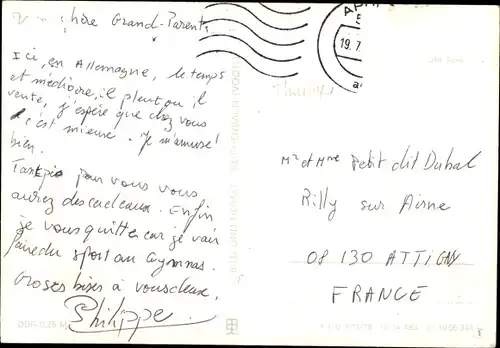 chère Grand-Parents
Ici, en Allemagne, le temps
et médiocre, il pleut ou il
vente, j'espère que chez vous
c'est mieux. Je m'amuse
bien.
Tanpis pour vous vous
aurez des cadeaux. Enfin
je vous quitte car je vais
faire du sport au Gymnas.
Groses bises à vous deux,
Philippe
19.7.
Mr et Mme Petit dit Duhal
Rilly sur Aisne
08 130 ATTIGNY
FRANCE